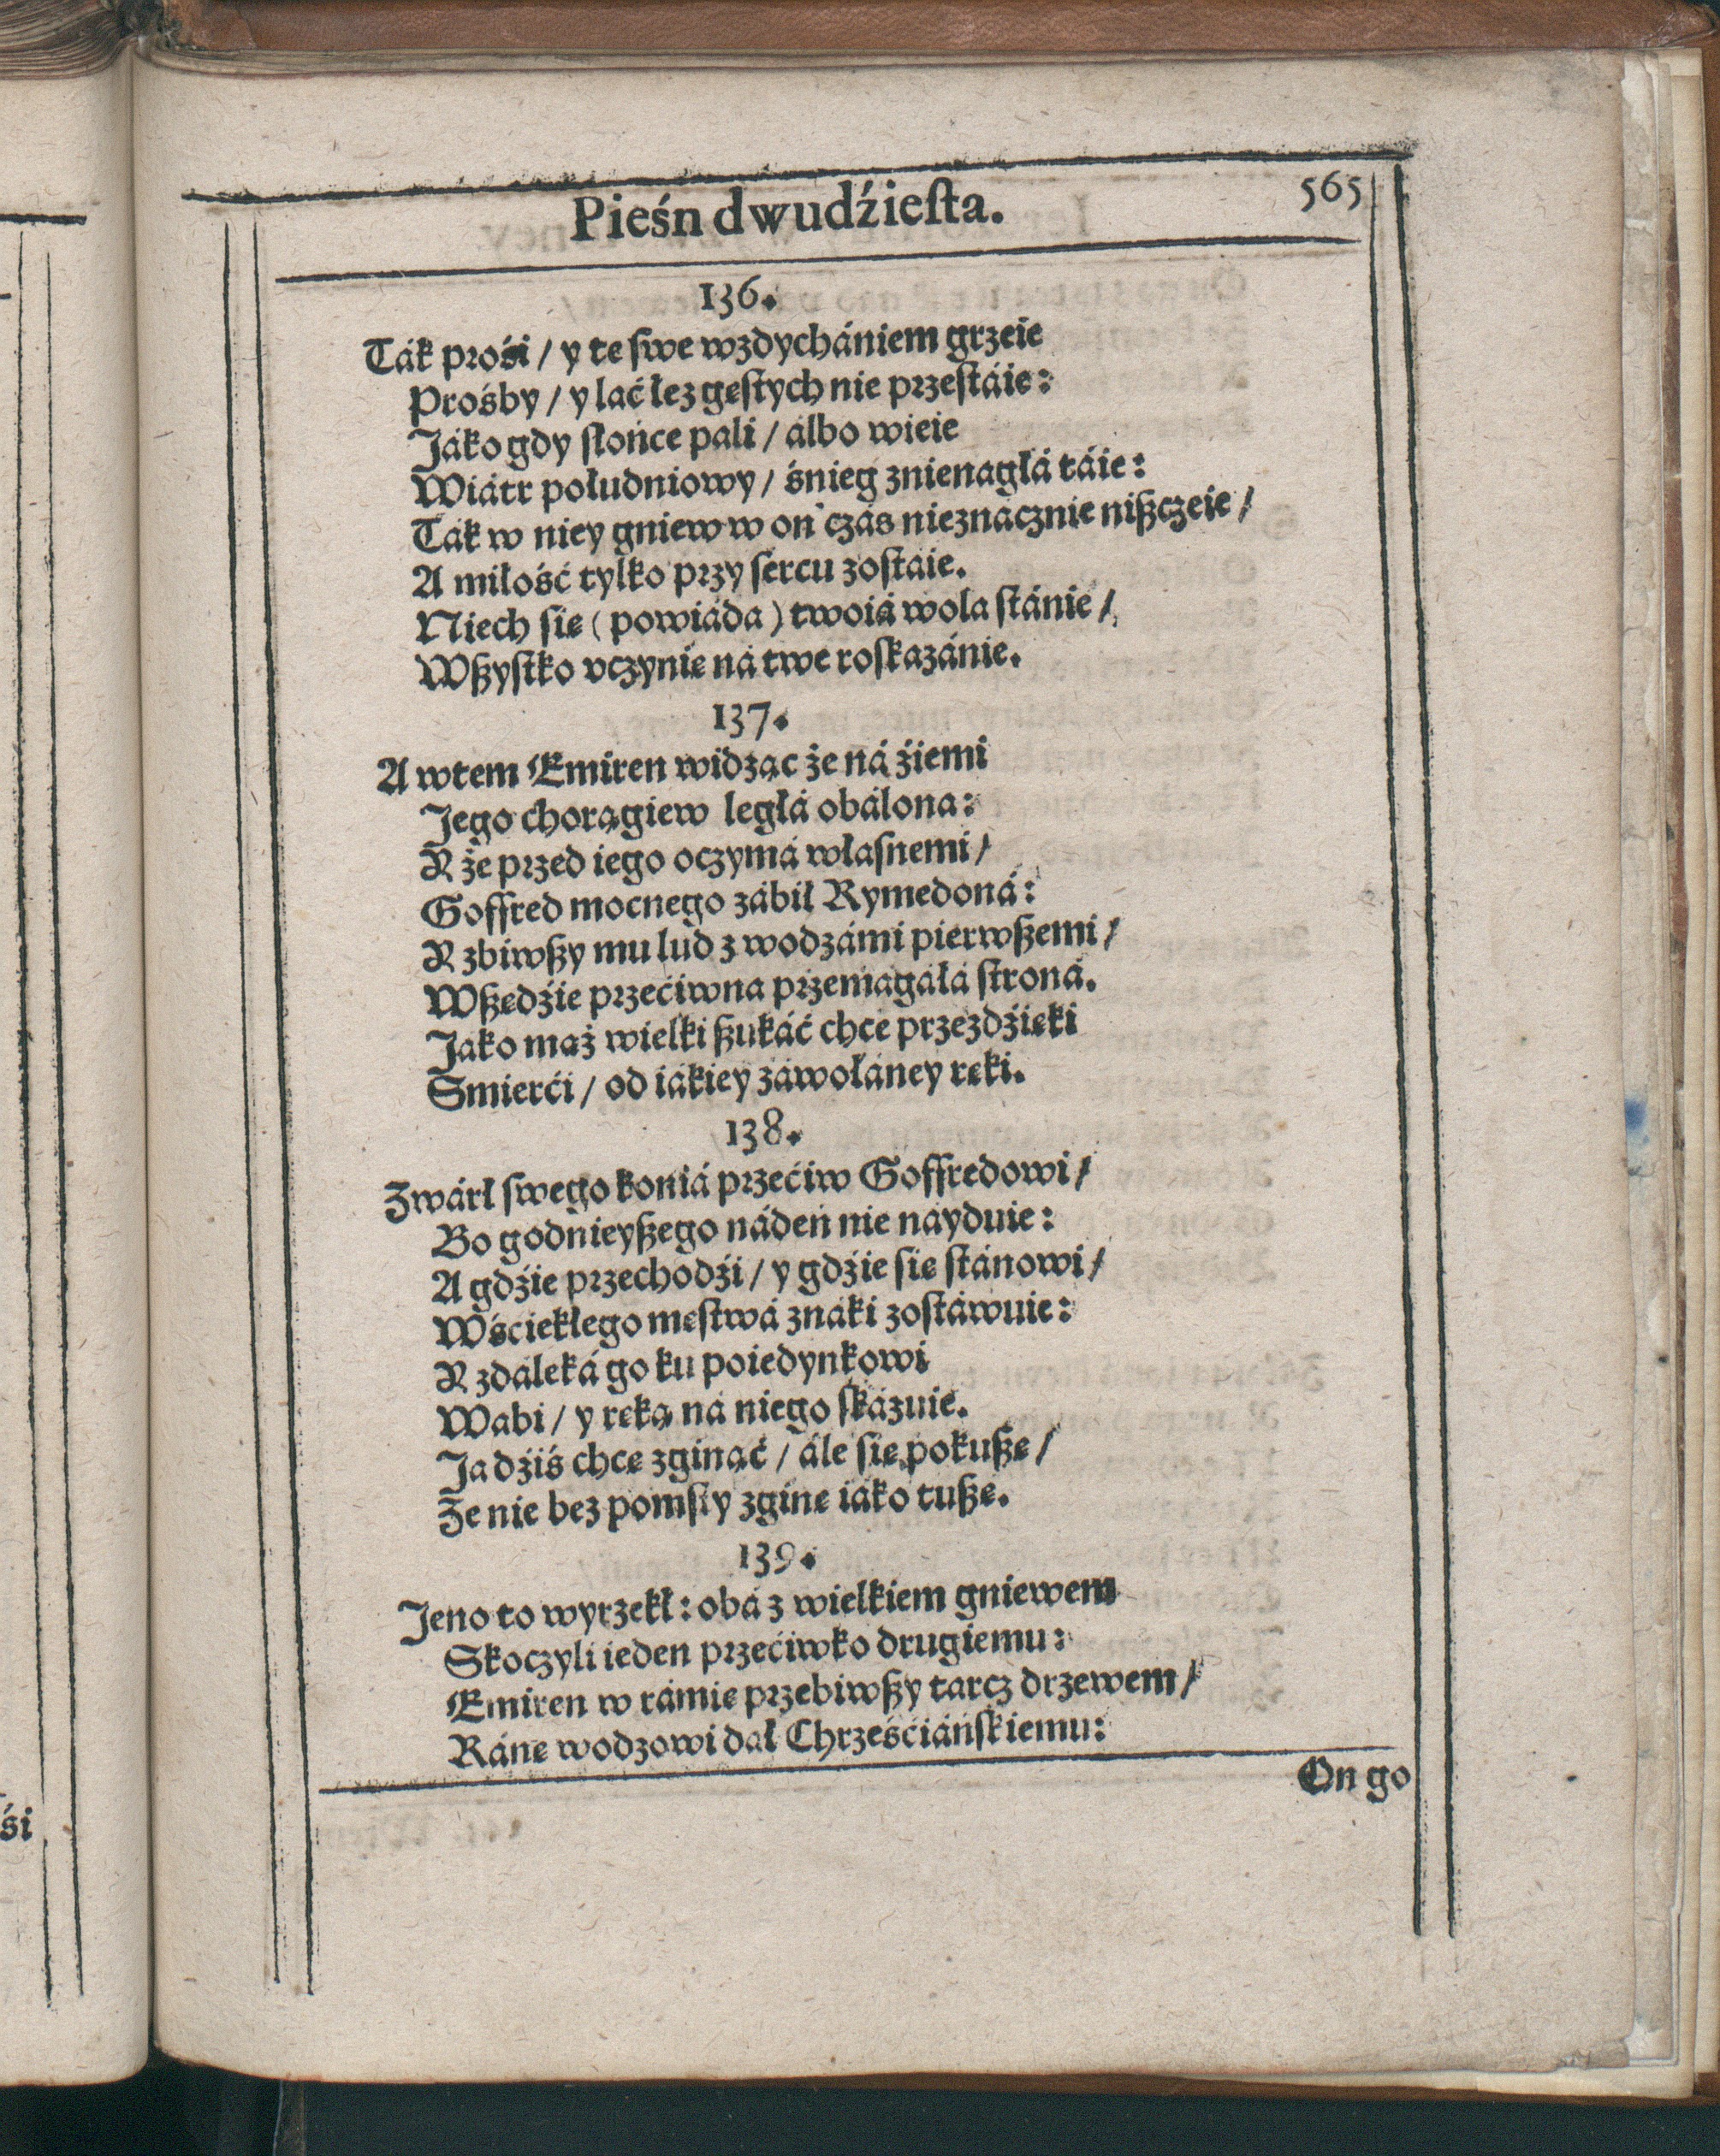 Pieśn dwudźieſta.
565
136.
Ták prośi / y te ſwe wzdychániem grzeie
Prośby / y lać łez gęſtych nie przeſtáie:
Jáko gdy ſłońce pali / álbo wieie
Wiátr południowy / śnieg znienagłá táie:
Ták w niey gniew w on czás nieznácznie niſzczeie /
A miłość tylko przy ſercu zoſtaie.
Niech ſię (powiáda) twoiá wola ſtánie /
Wſzyſtko vczynię ná twe roſkazánie.
137.
A wtem Emiren widząc że ná źiemi
Jego chorągiewległá obálona:
Y że przed iego oczymá właſnemi /
Goffred mocnego zábił Rymedoná:
Y zbiwſzy mu lud z wodzámi pierwſzemi /
Wſzędźie przećiwna przemagáłá ſtroná.
Jako mąż wielki ſzukáć chce przezdźięki
Smierći / od iákiey záwołáney ręki.
138.
Zwárł ſwego koniá przećiw Goffredowi /
Bo godnieyſzego nádeń nie náyduie:
A gdźie przechodźi / y gdźie ſię ſtánowi /
Wściekłego męſtwá znáki zoſtáwuie:
Y zdáleká go ku poiedynkowi
Wabi / y ręką ná niego ſkázuie.
Ja dźiś chcę zginąć / ále ſię pokuſzę /
Że nie bez pomſty zginę iáko tuſzę.
139.
Jeno to wyrzekł: obá z wielkiem gniewem
Skoczyli ieden przećiwko drugiemu:
Emiren w rámię przebiwſzy tarcz drzewem /
Ránę wodzowi dał Chrześćiáńſkiemu:
On go
śi